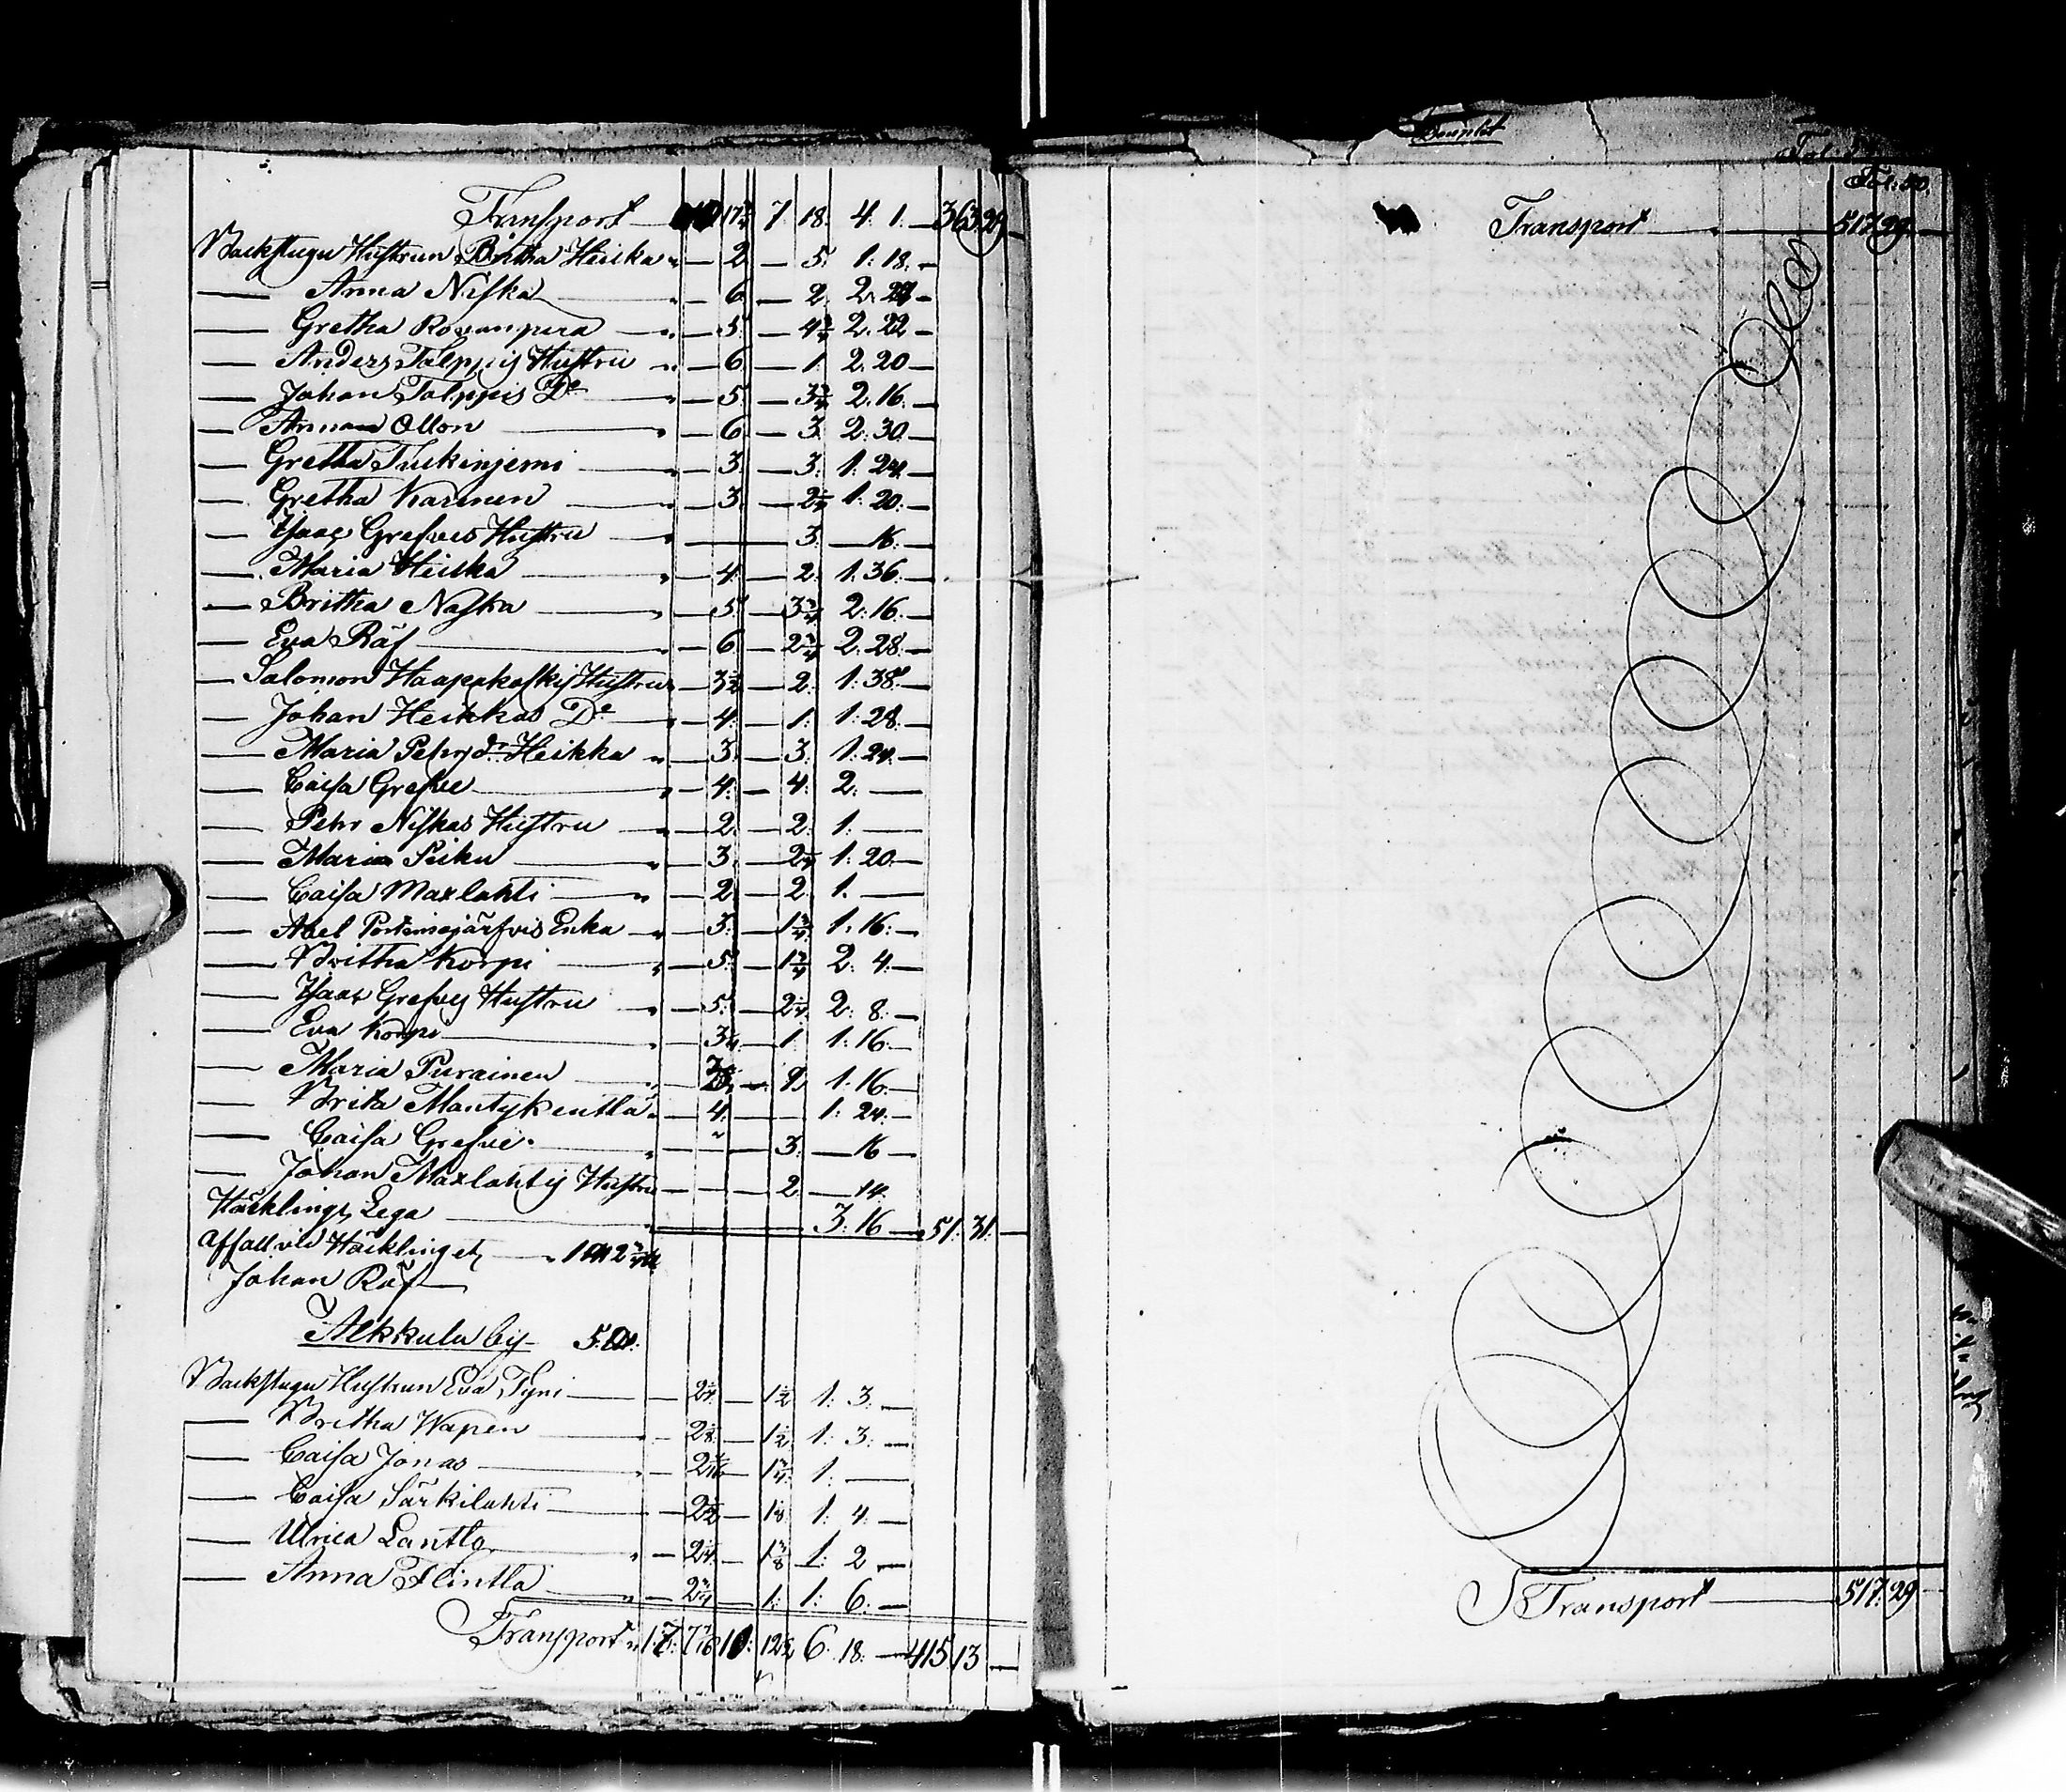 Transport — 17¾ 7 18. 4. 1. — 363 29 —
Backstugu Hustrun Britha Heika — 2 — 5. 1: 18. —
— Anna Niska — 6 — 2. 2. 24 —
— Gretha Rovanpera — 5. — 4¾ 2. 22 —
— Anders Talppis Hustru — 6 — 1 2. 20 —
— Johan Talppis Do — 5. — 3¾ 2. 16. —
— Anna Ollon — 6 — 3 2: 30. —
— Gretha Tuckinjemi — 3. — 3: 1: 24. —
— Gretha Karinen — 3. — 2¼ 1: 20. —
— Isaac Grefves Hustru — 3. — 16. —
— Maria Heiska — 4. — 2. 1: 36. —
— Britha Naska — 5. — 3¾ 2: 16. —
— Eva Räf — 6 — 2¾ 2: 28. —
— Salomon Haapakoskis Hustru — 3½ — 2. 1: 38. —
— Johan Heikkas Do — 4. — 1. 1: 28. —
— Maria Pehrs dr Heikka — 3. — 3. 1: 24. —
— Caisa Grefve — 4. — 4. 2. —
— Pehr Niskas Hustru — 2. — 2. 1. —
— Maria Peiku — 3. — 2¼ 1: 20. —
— Caisa Maxlahti — 2. — 2. 1. —
— Abel Portimojärfvis Enka — 3. — 1¾ 1. 16. —
— Britha Korpi — 5. — 1¾ 2: 4. —
— Isaac Grefves Hustru — 5. — 2¼ 2: 8. —
— Eva Korpi — 3¼ — 1. 1: 16. —
— Maria Purainen — 1: 16. —
— Brita Mantykentla — 4. — 1: 24. —
— Caisa Grefve — 3. — 16 —
— Johan Maxlahtis Hustru — 2 — 14.
Häcklings Lega — 3: 16 — 51: 31. —
Affall vid Häcklinget —
Johan Räf —
Alkkula by 5
Backstugu Hustrun Eva Tyni — 2¼ — 1½ 1: 3. —
— Britha Wapen — 2⅛ — 1½ 1: 3. —
— Caisa Jonas — — 1¾ 1: —
— Caisa Särkilahti — 2½ — 1⅛ 1: 4. —
— Ulrica Lantto — 2¼ — 1⅜ 1: 2 —
— Anna Flintta — 2¾ — 1: 1: 6. —
Transport 17. 10: 12½ 6. 18. — 415. 13 —
Fol: 50
Transport — 517. 29. —
Transport — 517. 29 —